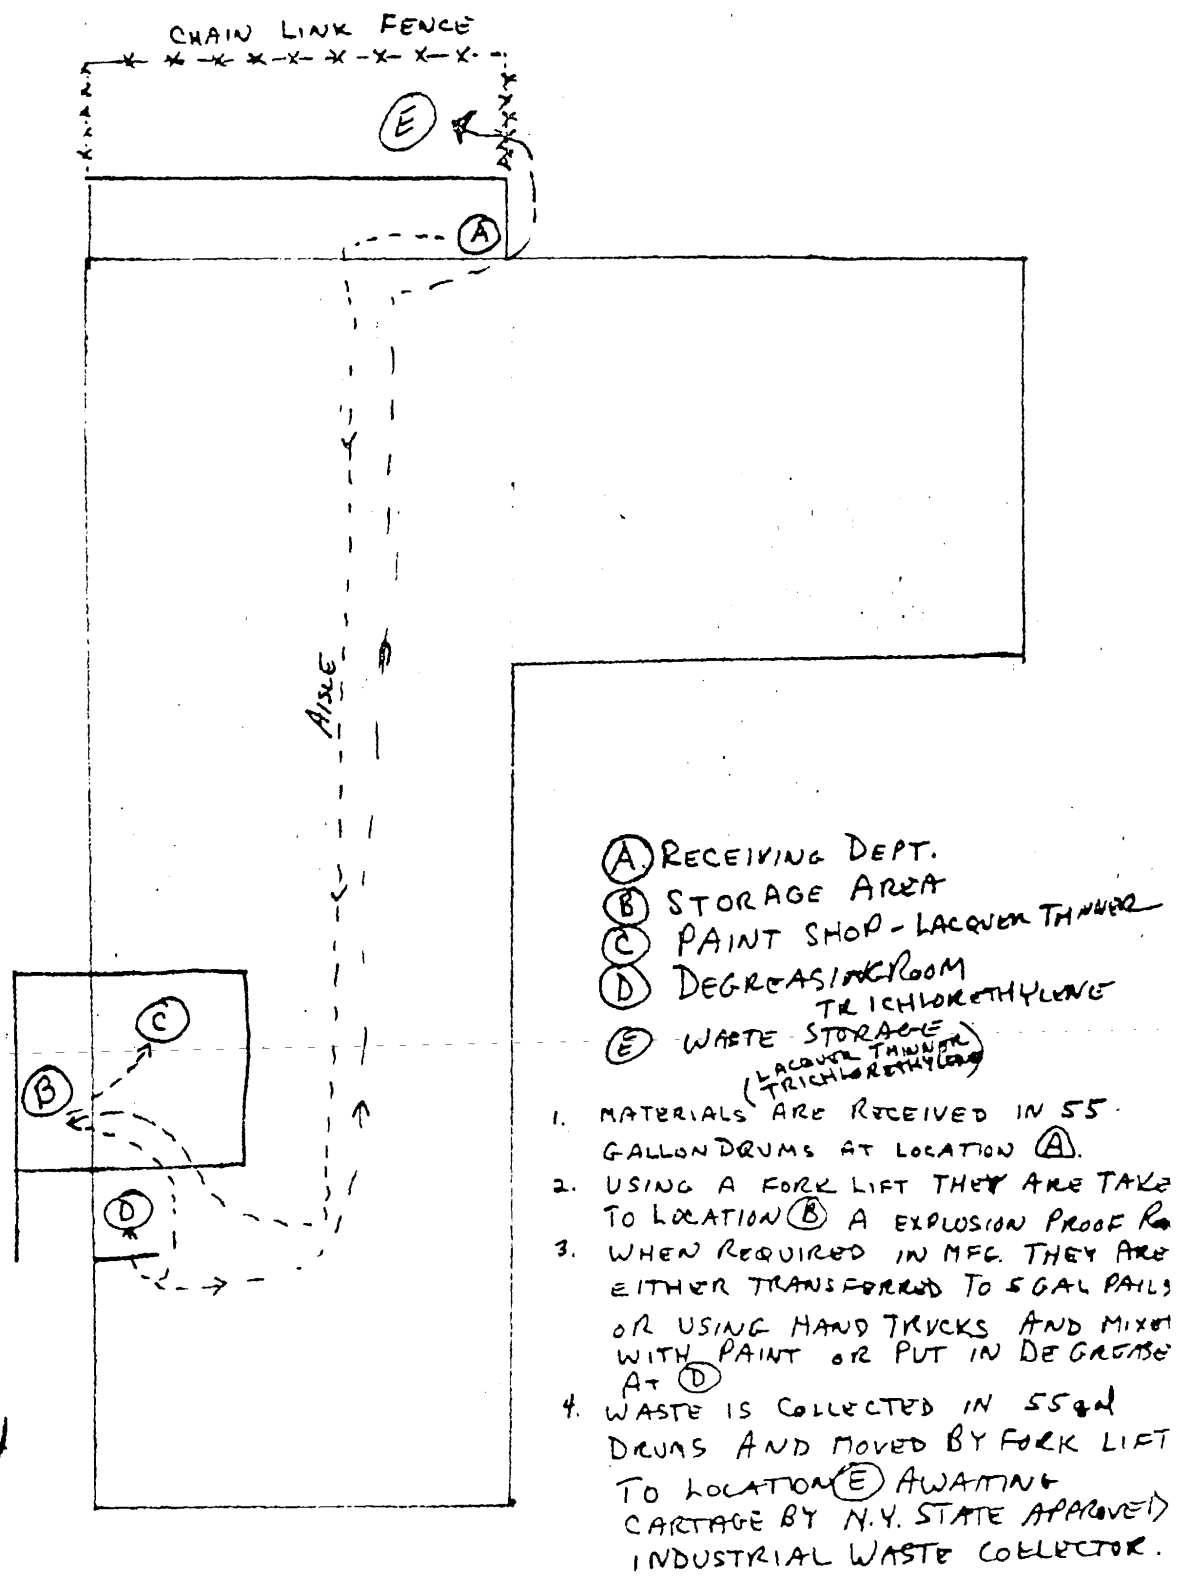 CHAIN LINK FENCE
E
A
AISLE
C
B
D
A RECEIVING DEPT.
B STORAGE AREA
C PAINT SHOP - LACQUER THINNER
D DEGREASING ROOM
TRICHLORETHYLENE
E WASTE STORAGE
(LACQUER THINNER
TRICHLORETHYLENE)
1. MATERIALS ARE RECEIVED IN 55
GALLON DRUMS AT LOCATION A.
2. USING A FORK LIFT THEY ARE TAKE
TO LOCATION B A EXPLOSION PROOF
3. WHEN REQUIRED IN MFG. THEY ARE
EITHER TRANSFERRED TO 5 GAL PAILS
OR USING HAND TRUCKS AND MIXED
WITH PAINT OR PUT IN DEGREASE
AT D
4. WASTE IS COLLECTED IN 55 gal
DRUMS AND MOVED BY FORK LIFT
TO LOCATION E AWAITING
CARTAGE BY N.Y. STATE APPROVED
INDUSTRIAL WASTE COLLECTOR.